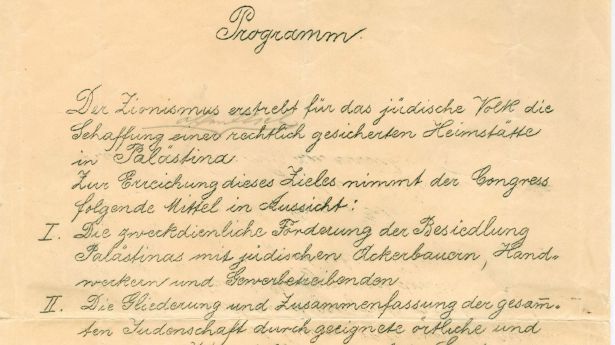 Programm.
Der Zionismus erstrebt für das jüdische Volk die
Schaffung einer rechtlich gesicherten Heimstätte
in Palästina
Zur Erreichung dieses Zieles nimmt der Congress
folgende Mittel in Aussicht:
I. Die zweckdienliche Förderung der Besiedlung
Palästinas mit jüdischen Ackerbauern, Hand-
werkern und Gewerbetreibenden
II. Die Gliederung und Zusammenfassung der gesam̅-
ten Judenschaft durch geeignete örtliche und